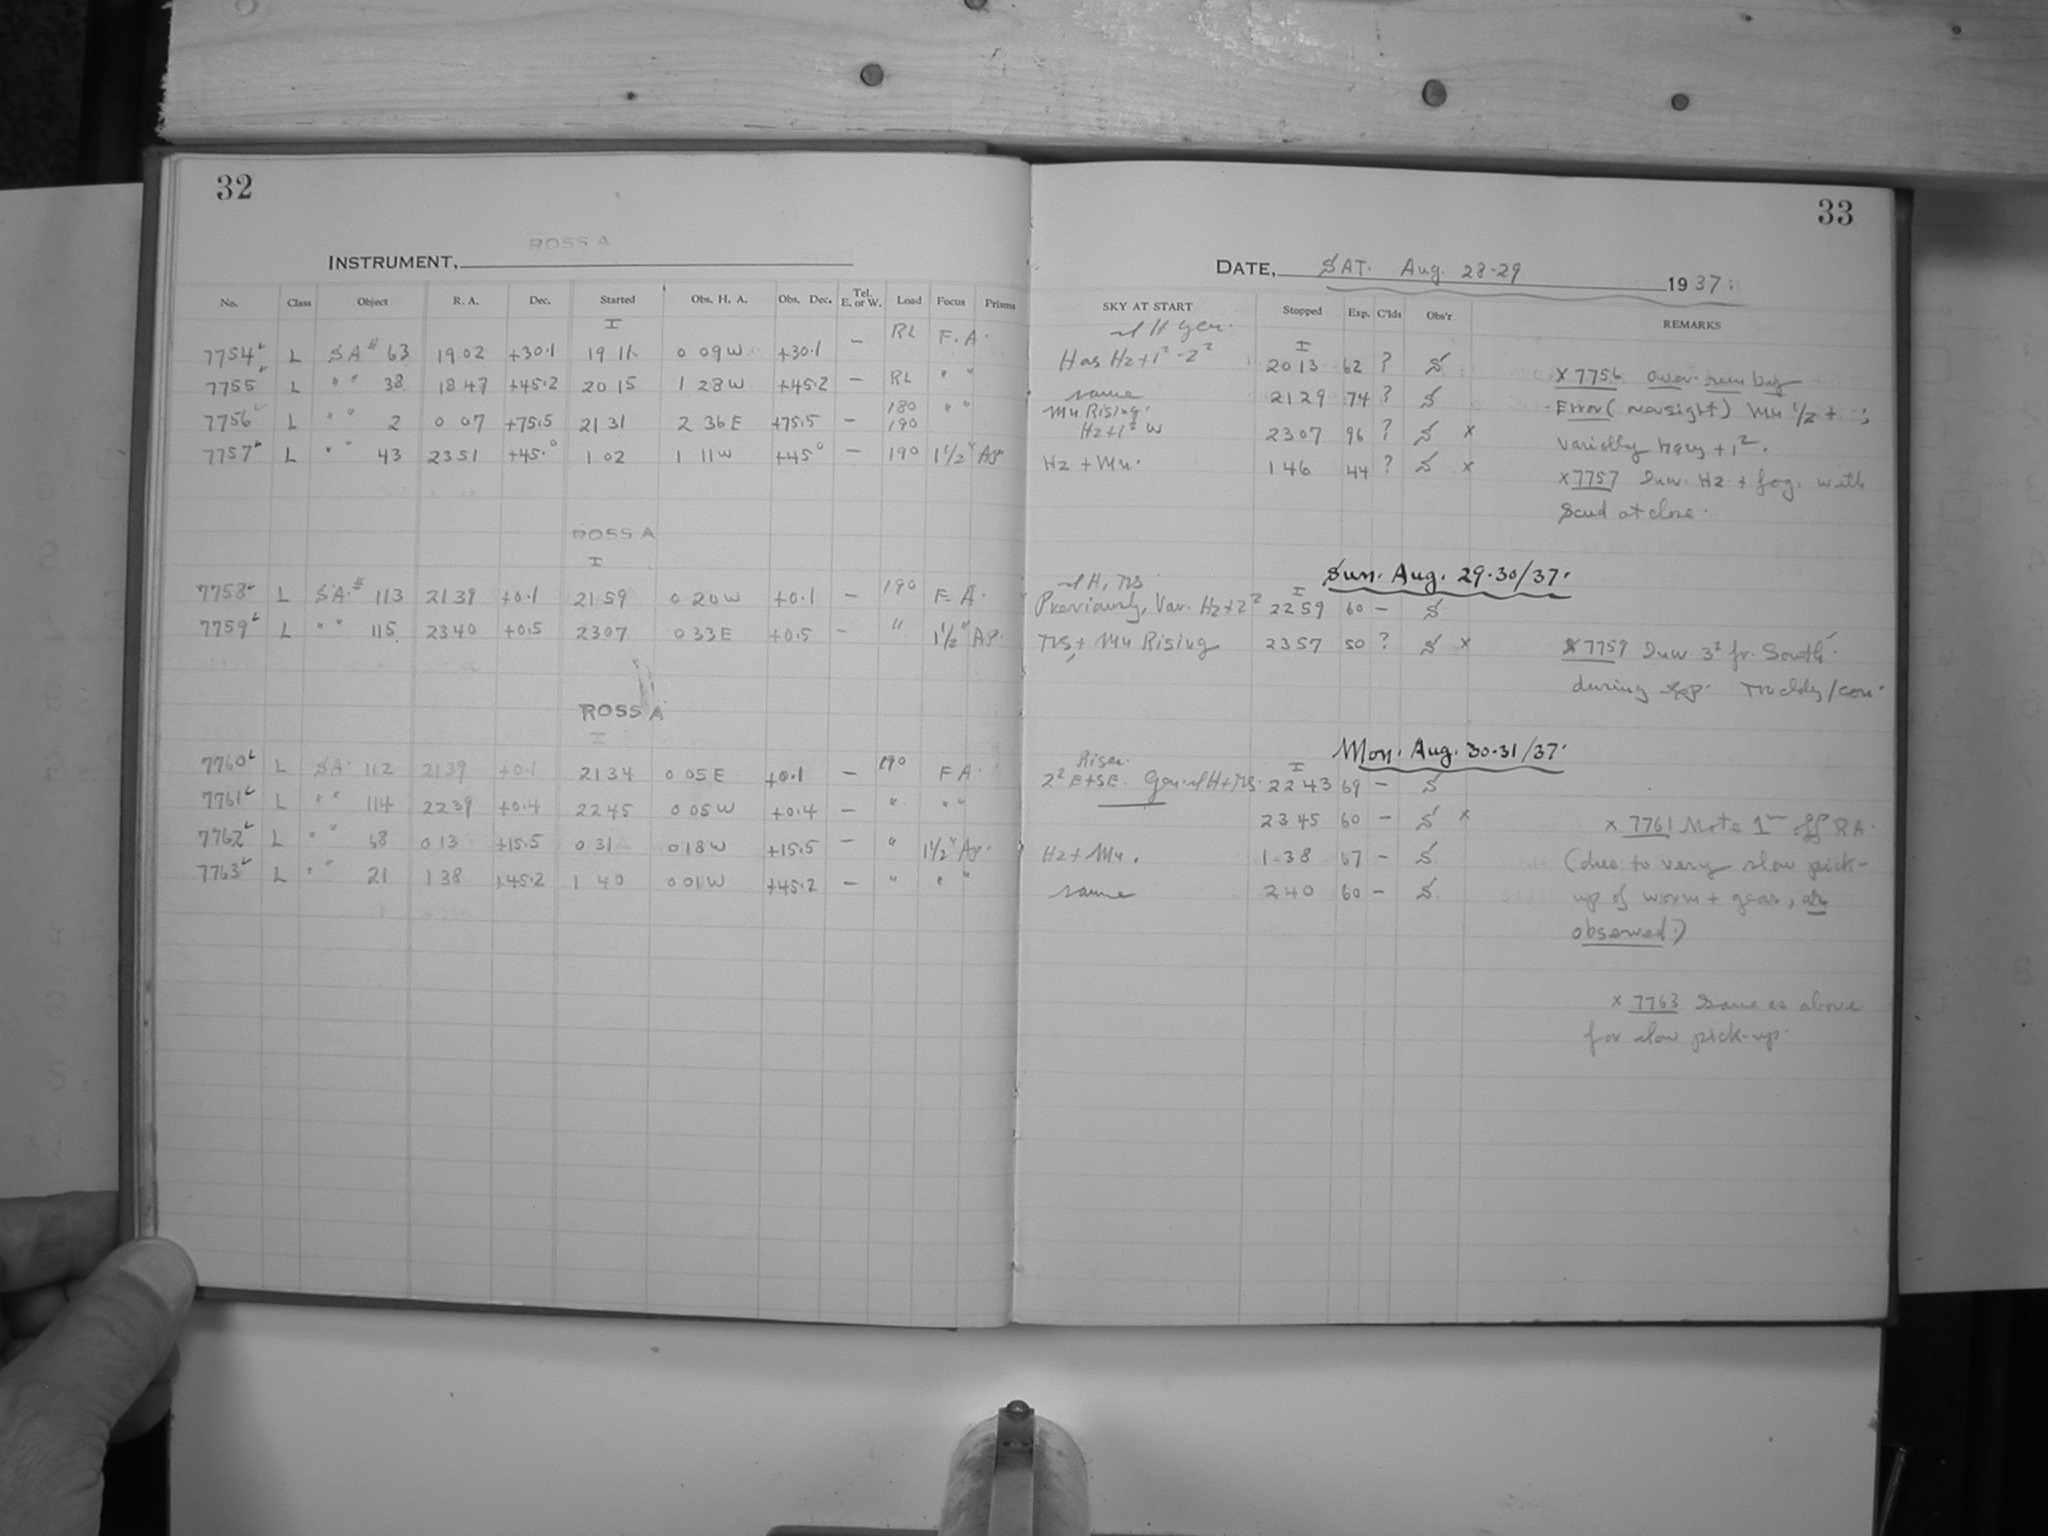 32
ROSS A
INSTRUMENT,
No. Class Object R. A. Dec. Started Obs. H. A. Obs. Dec. Tel. E. or W. Load Focus Prisms
7754 L SA# 63 19 02 +30.1 19 11 0 09 W +30.1 — RL F. A.
7755 L " " 38 18 47 +45.2 20 15 1 28 W +45.2 — RL " "
7756 L " " 2 0 07 +75.5 21 31 2 36 E +75.5 — 180 190 " "
7757 L " " 43 23 51 +45.° 1 02 1 11 W +45° — 190 1 1/2" Ap.
ROSS A
I
7758 L SA.# 113 21 39 +0.1 21 59 0 20 W +0.1 — 190 F. A.
7759 L " " 115 23 40 +0.5 23 07 0 33 E +0.5 - " 1 1/2" Ap.
ROSS A
I
7760 L SA. 112 21 39 +0.1 21 34 0 05 E +0.1 — 190 F A.
7761 L " " 114 22 39 +0.4 22 45 0 05 W +0.4 — " " "
7762 L " " 68 0 13 +15.5 0 31 0 18 W +15.5 — " 1 1/2" Ap.
7763 L " " 21 1 38 +45.2 1 40 0 01 W +45.2 — " " "
33
DATE, SAT. Aug. 28-29 1937.
SKY AT START Stopped Exp. C'lds Obs'r REMARKS
Has Hz+1²-2² 20 13 62 ? S
same 21 29 74 ? S
Mu Rising.
Hz+1² W 23 07 96 ? S x
Hz + Mu. 1 46 44 ? S x
x 7756 over-run by
Error (oversight) Mu 1/2 + ;
variably hazy + 1².
x 7757 Hz + fog. with
Scud at close.
Sun. Aug. 29-30/37.
Previously, Var. Hz+2² 22 59 60 — S
+ Mu Rising 23 57 50 ? S x
x 7759 3² fr. South
during exp.
Mon. Aug. 30-31/37.
2² E+SE. 22 43 69 — S
23 45 60 — S x
Hz + Mu. 1 38 67 — S
same 2 40 60 — S
x 7761 Note 1ᵐ off RA.
(due to very slow pick-
up of worm + gear, as
observed.)
x 7763 Same as above
for slow pick-up.